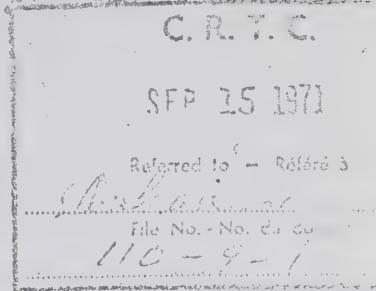 C. R. T. C.
SEP 15 1971
Referred to - Référé à
File No. - No. du
110 - 9 - 1